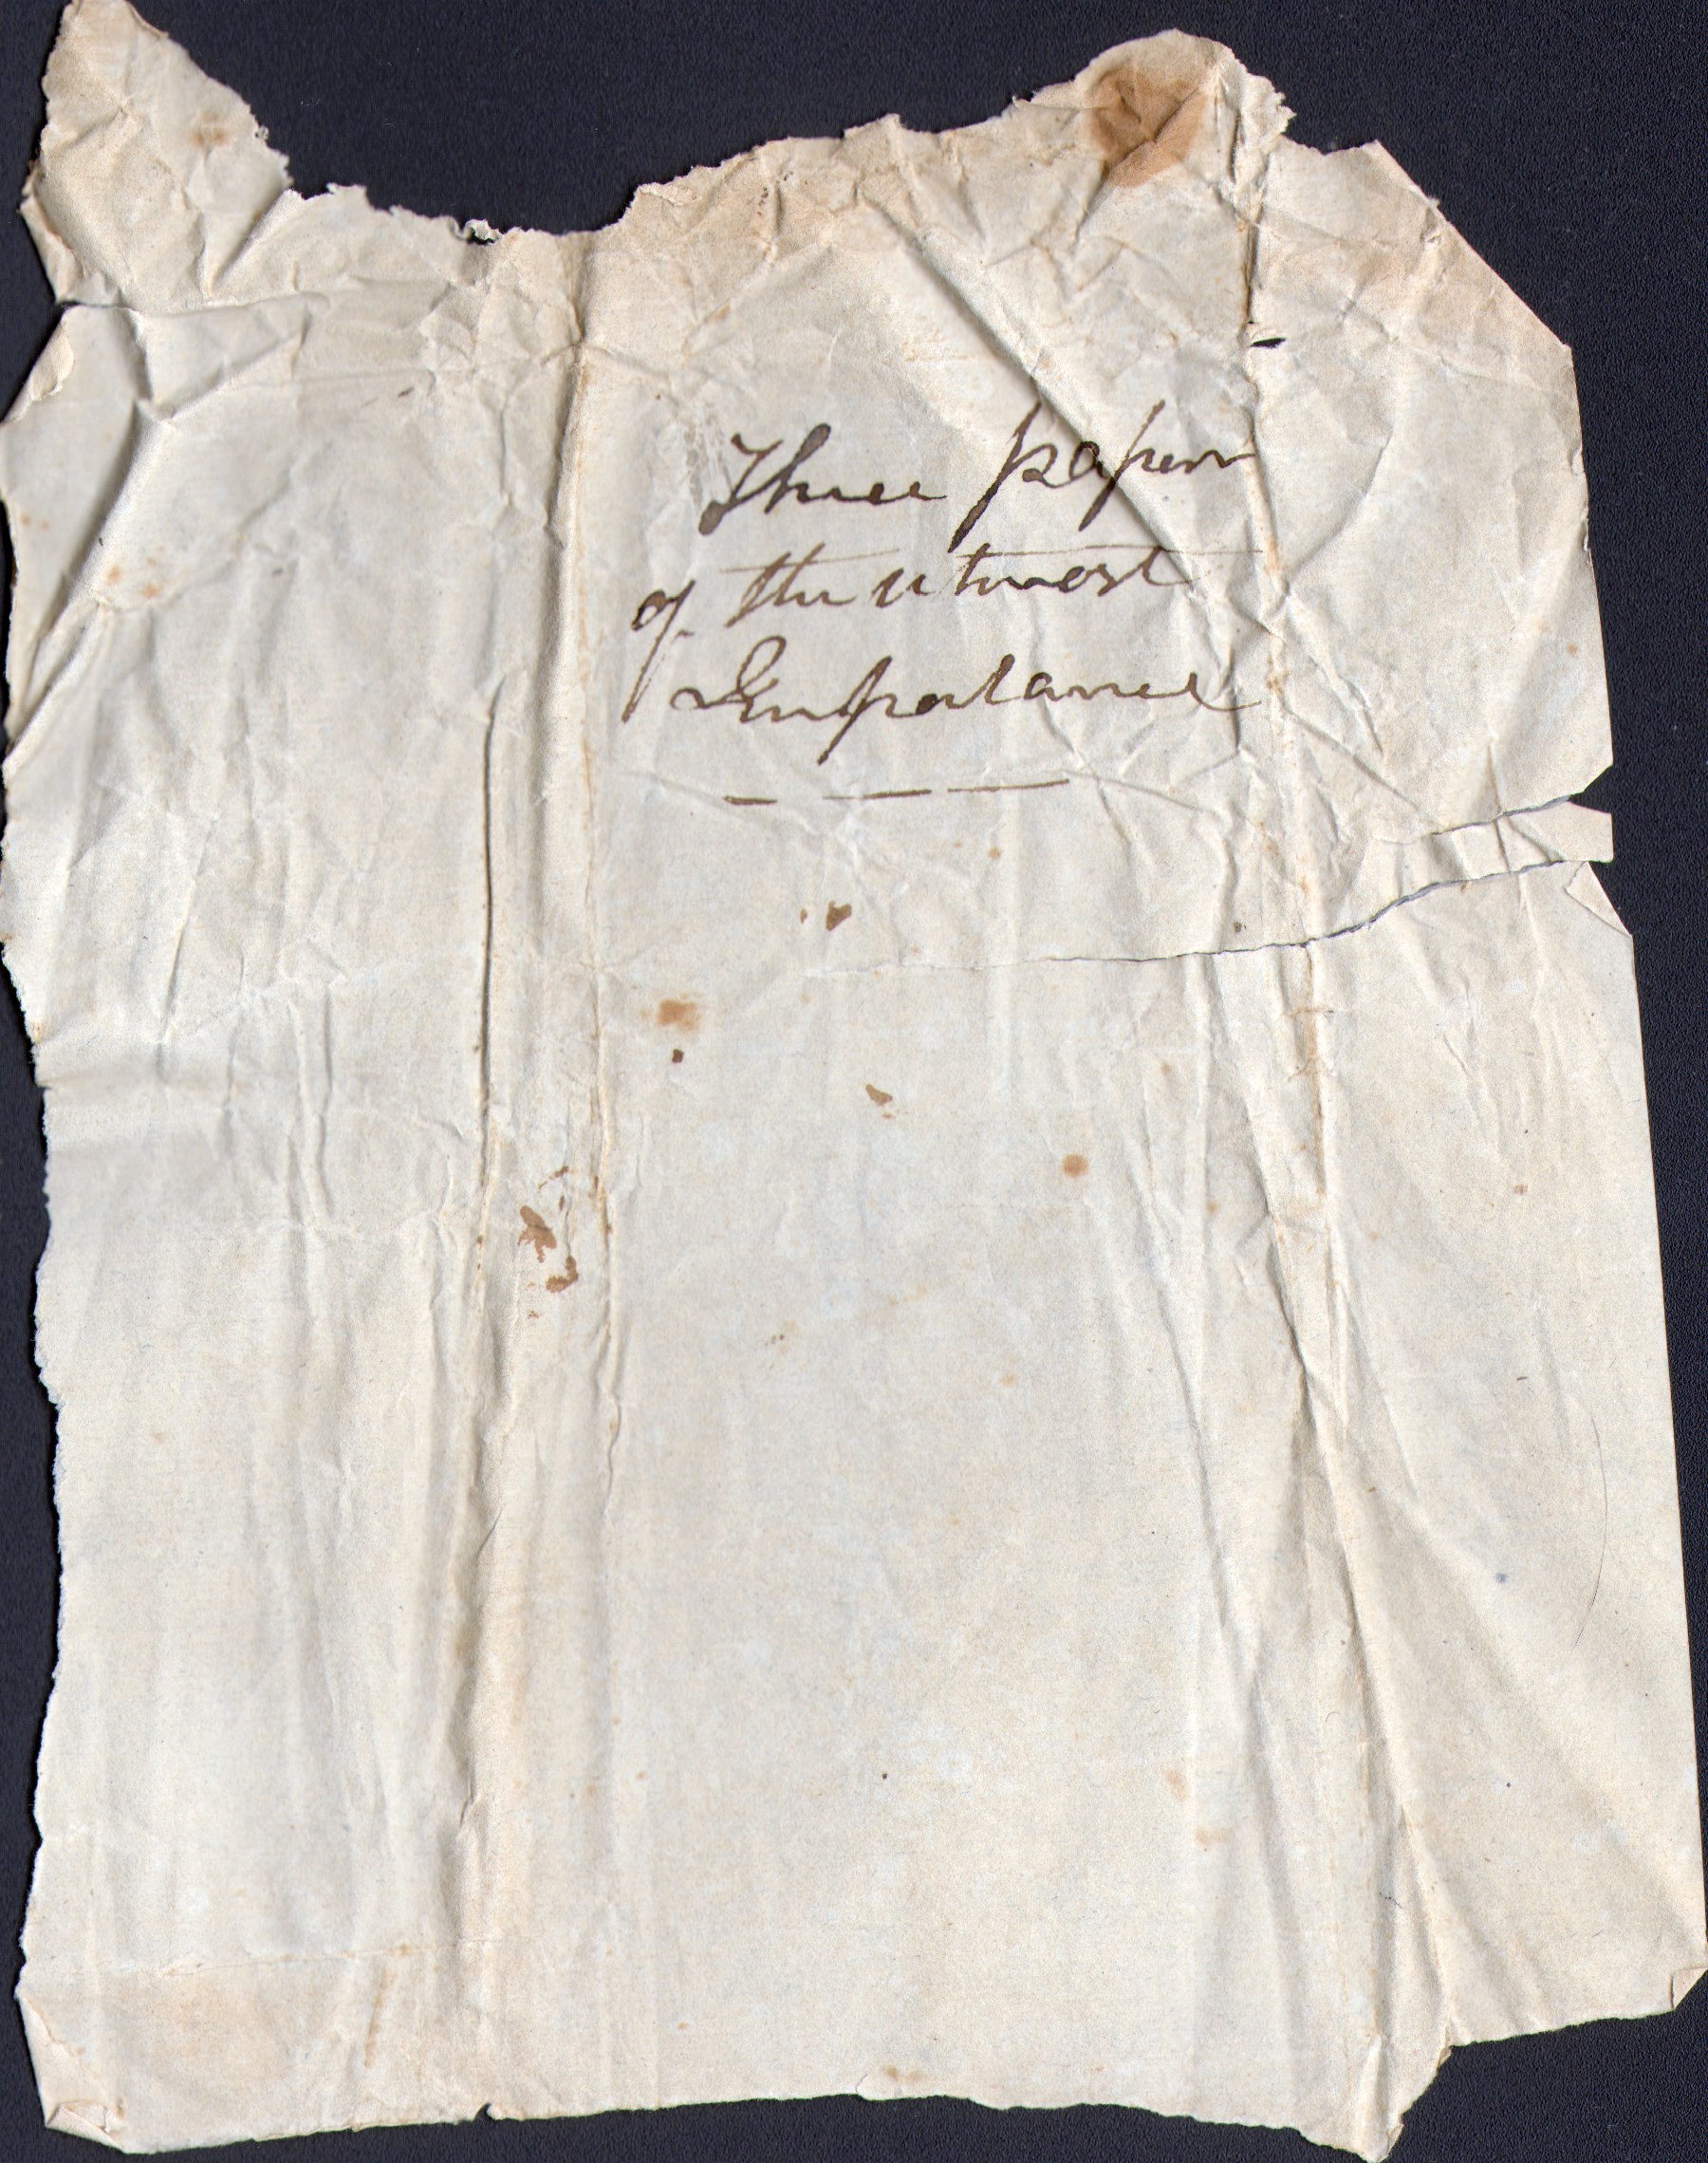 Three papers
of the utmost
Importance